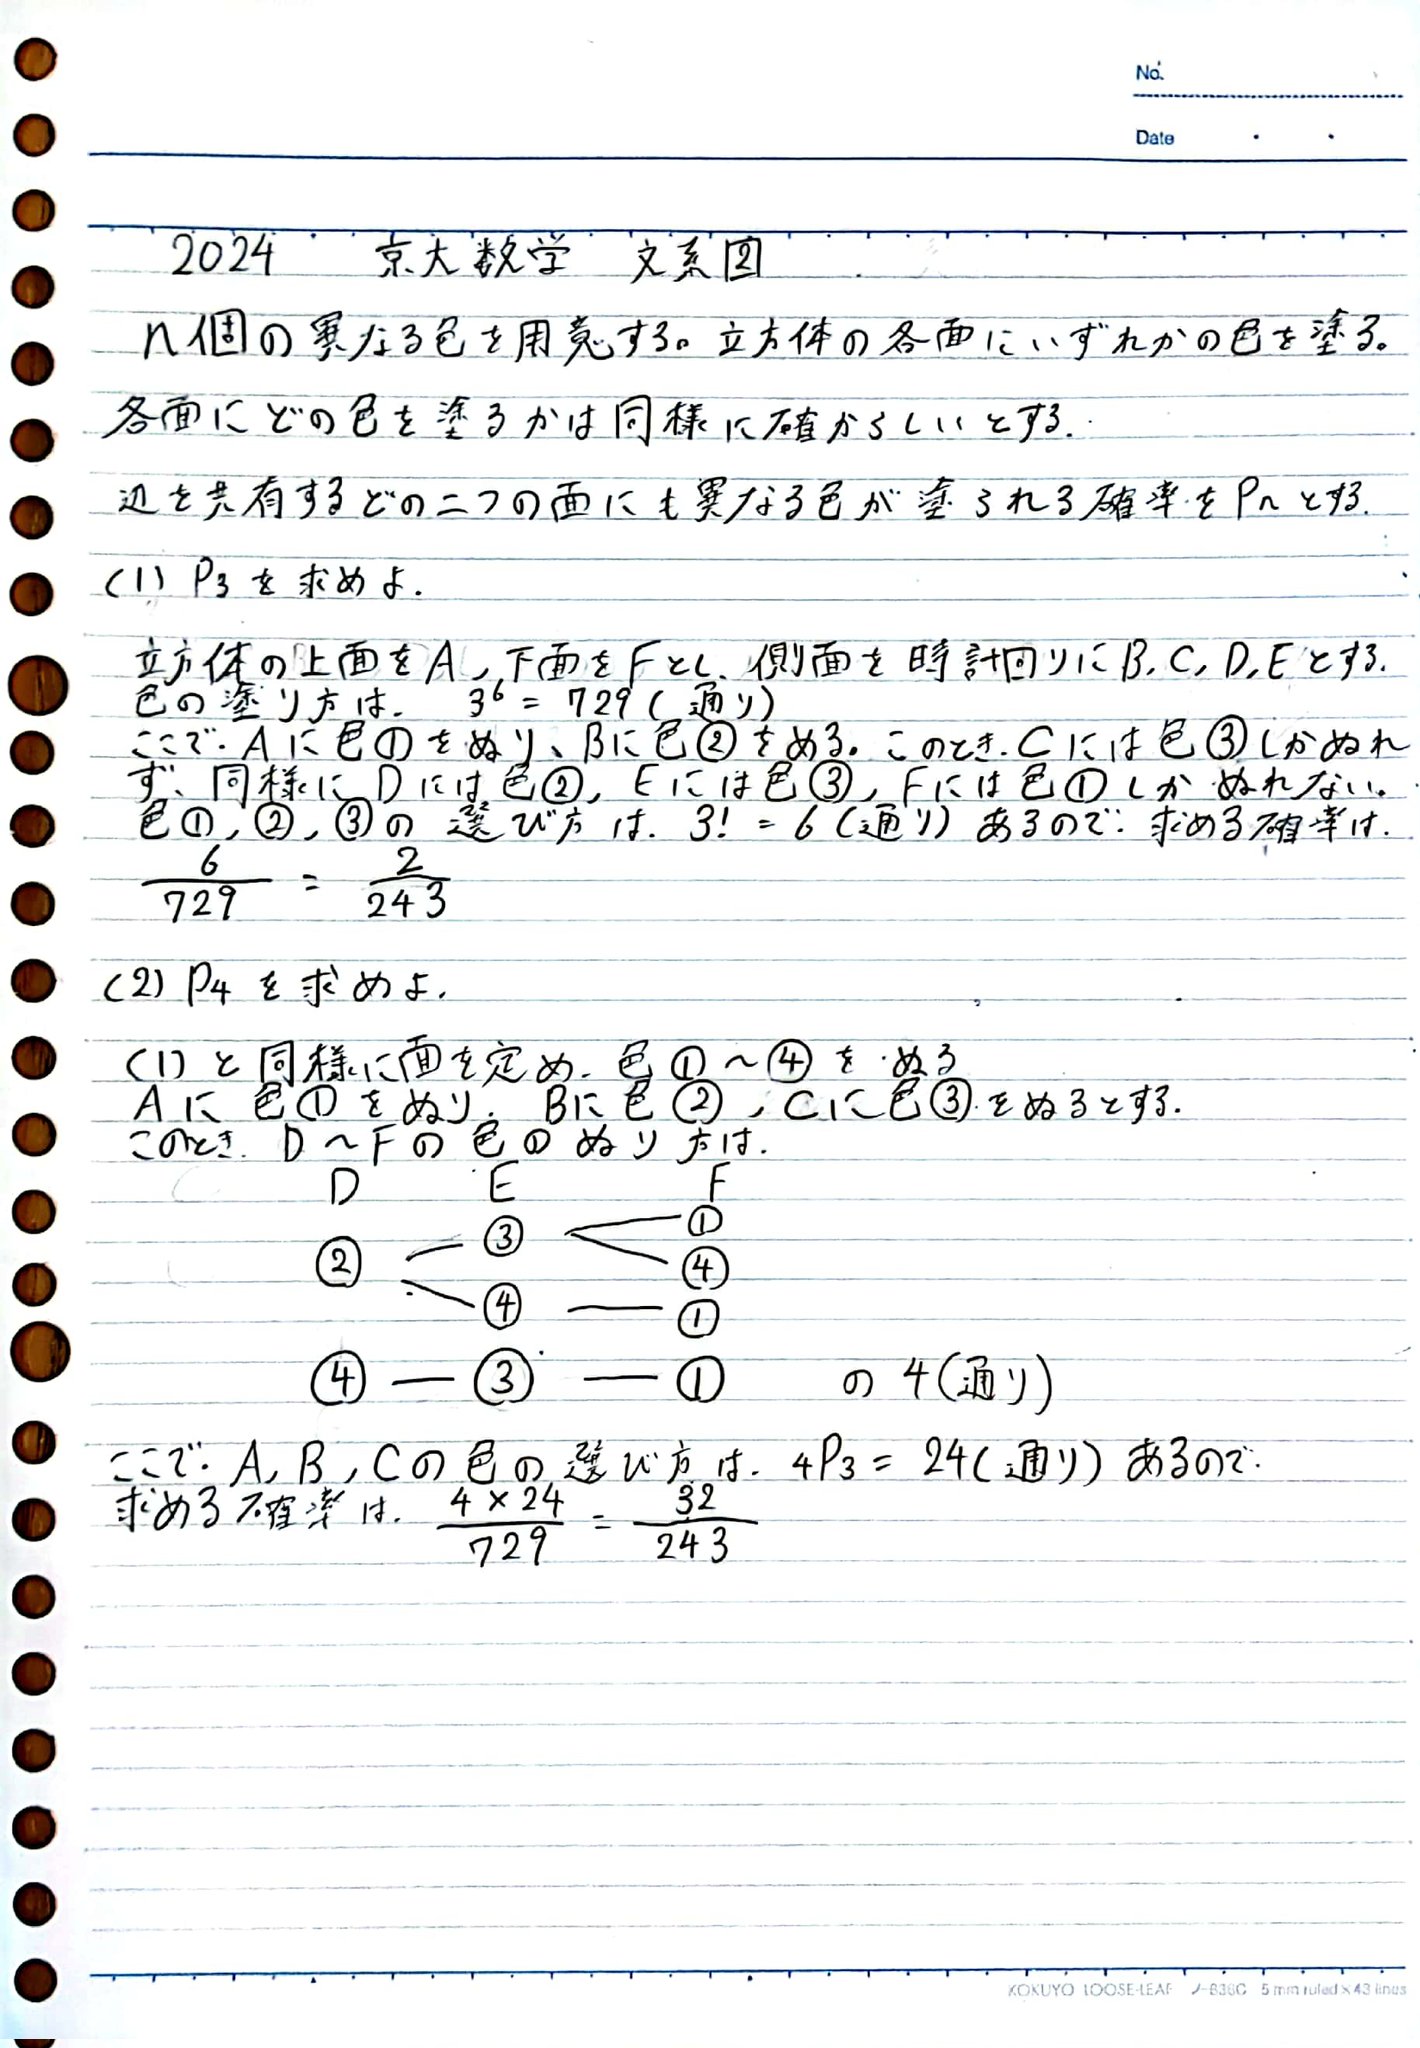 No.
Date
2024 京大数学 文系②
n個の異なる色を用意する。立方体の各面にいずれかの色を塗る。
各面にどの色を塗るかは同様に確からしいとする.
辺を共有するどの二つの面にも異なる色が塗られる確率をPnとする.
(1) P3を求めよ.
立方体の上面をA,下面をFとし.側面を時計回りにB,C,D,Eとする.
色の塗り方は. 3^6 = 729(通り)
ここで.Aに色①をぬり、Bに色②をめる。このとき.Cには色③しかぬれ
ず、同様にDには色②, Eには色③, Fには色①しかぬれない。
色①,②,③の選び方は. 3! = 6(通り)あるので.求める確率は.
6/729 = 2/243
(2) P4を求めよ.
(1)と同様に面を定め.色①~④をぬる
Aに色①をぬり. Bに色②, Cに色③をぬるとする.
このとき. D~Fの色のぬり方は.
D E F
② ③ ①
④
④ ①
④ — ③ — ① の4(通り)
ここで.A,B,Cの色の選び方は. 4P3 = 24(通り)あるので.
求める確率は. 4×24/729 = 32/243
KOKUYO LOOSE-LEAF ノ-836C 5 mm ruled×43 lines